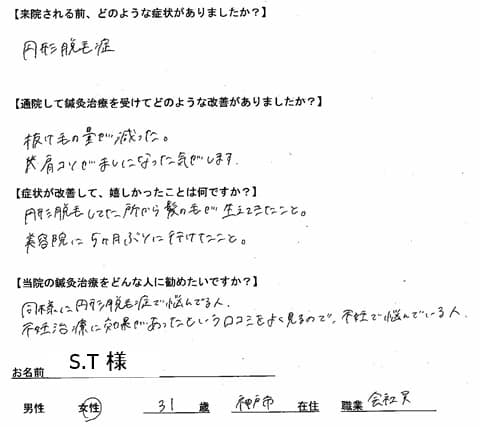 【来院される前、どのような症状がありましたか？】
円形脱毛症
【通院して鍼灸治療を受けてどのような改善がありましたか？】
抜け毛の量が減った。
肩コリがましになった気がします.
【症状が改善して、嬉しかったことは何ですか？】
円形脱毛してた所から髪の毛が生えてきたこと。
美容院に5ヶ月ぶりに行けたこと。
【当院の鍼灸治療をどんな人に勧めたいですか？】
同様に円形脱毛症で悩んでる人.
不妊治療に効果があったという口コミをよく見るので、不妊で悩んでいる人.
お名前 S.T 様
男性 女性 31 歳 神戸市 在住 職業 会社員